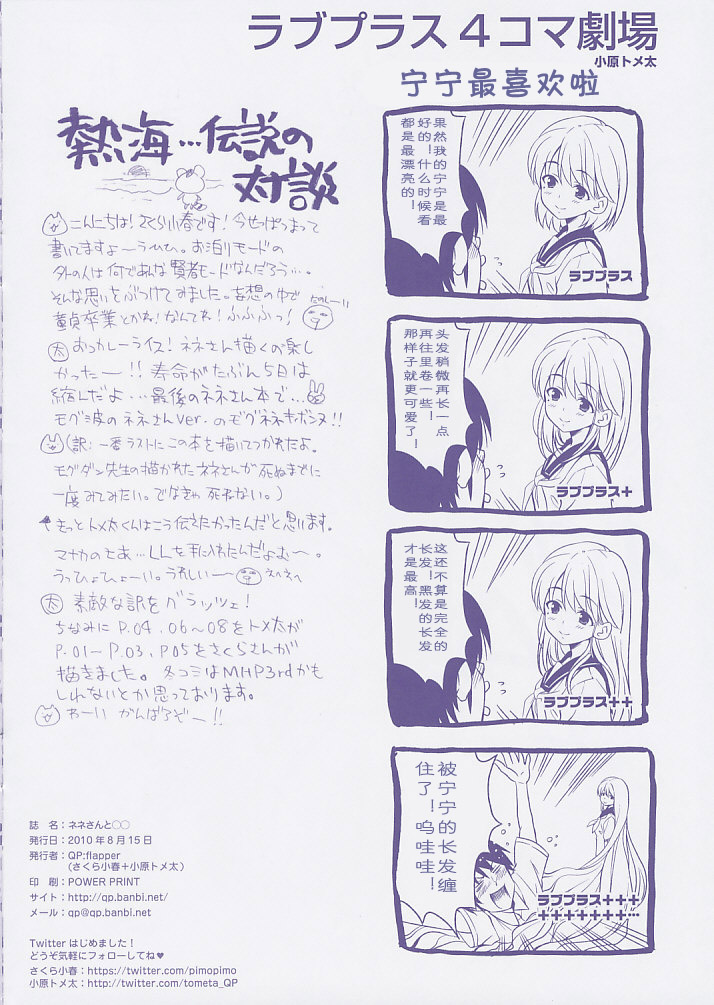 ラブプラス4コマ劇場
小原トメ太
宁宁最喜欢啦
果然我的宁宁是最
好的!什么时候看
都是最漂亮的!
ラブプラス
头发稍微再长一点
再往里卷一些!
那样子就更可爱了!
ラブプラス+
这还不算是完全的
长发!黑发的长发
才是最高!
ラブプラス++
被宁宁的长发缠
住了!呜哇哇!
ラブプラス+++
+++++++…
熱海…伝説の
対談
こんにちは!さくら小春です!今せっぱつまって
書いてますよーうひひ。お泊りモードの
外の人は何であんな賢者モードなんだろう…。
そんな思いをぶつけてみました。妄想の中で
たのしーい
童貞卒業とかね!なんてね!ふふふっ!
太 おっかレーライス!ネネさん描くの楽し
かったー!!寿命がたぶん5日は
縮んだよ…最後のネネさん本で…
モグミ波のネネさんver.のモグネネキボンヌ!!
(訳:一番ラストにこの本を描いてつかれたよ。
モグダン先生の描かれたネネさんが死ぬまでに
一度みてみたい。でなきゃ死ねない。)
きっとトメ太くんはこう伝えたかったんだと思います。
マナカのとあ…LLを手に入れたんだよむ〜。
うっひょひょーい。うれしいー
太 素敵な訳をグラッツェ!
ちなみにP.04,06〜08をトメ太が
P.01-P.03,P05をさくらさんが
描きました。冬コミはMHP3rdかも
しれないとか思っております。
わーい がんばるぞー!!
誌 名:ネネさんと○○
発行日:2010年8月15日
発行者:QP:flapper
(さくら小春+小原トメ太)
印 刷:POWER PRINT
サイト:http://qp.banbi.net/
メール:qp@qp.banbi.net
Twitter はじめました!
どうぞ気軽にフォローしてね♥
さくら小春:https://twitter.com/pimopimo
小原トメ太:http://twitter.com/tometa_QP